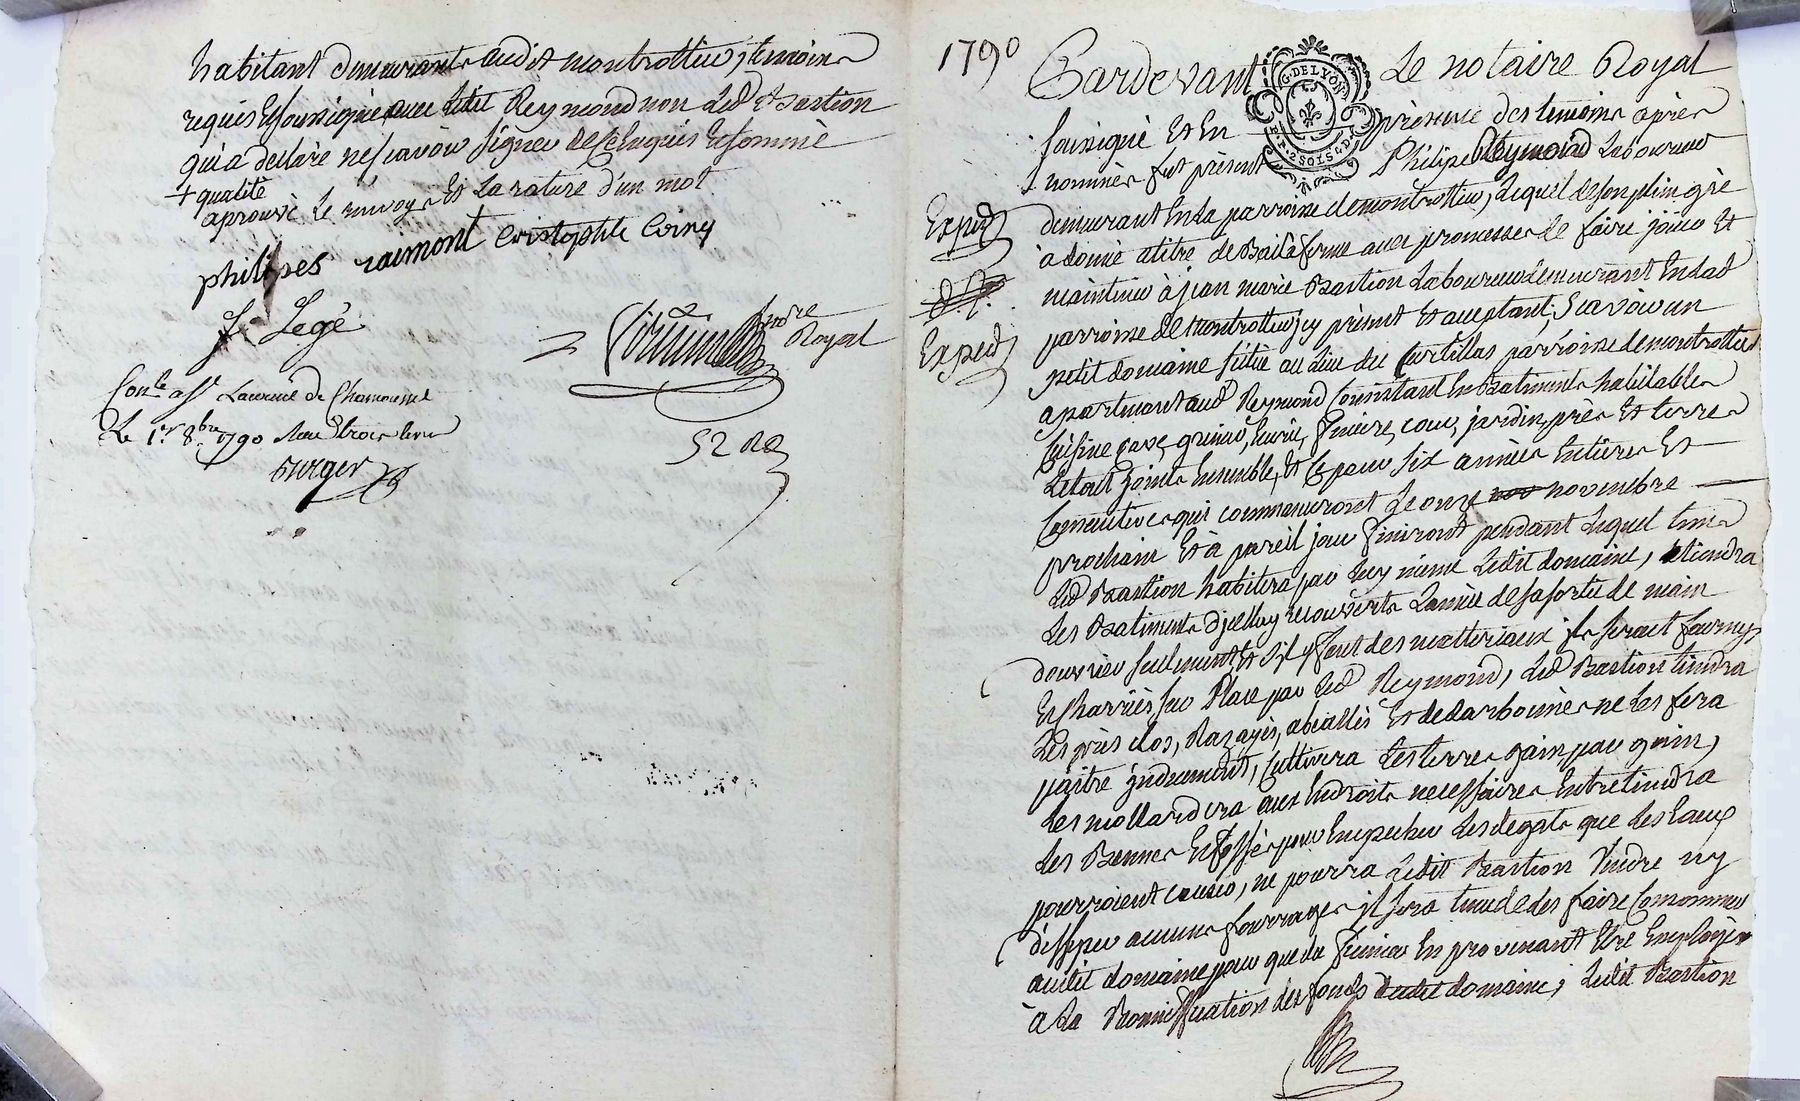 habitant demeurants audit montrottier, temoins
requis et soussignés avec ledit Reymond non led. Bastion
qui a declaré ne sçavoir signer de ce enquis et sommé
+ qualité
aprouvé le renvoy et la rature d'un mot
philipes raimont Cristophle Coing
f. Legé
nore Royal
Conlé a St Laurent de Chamousset
Le 1er 8bre 1790 trois livres
burger
52 Rd
1790
Pardevant Le notaire Royal
G. DE LYON
2 SOLS 4 D.
soussigné et en présence des temoins après
nommés fut présent Philipe Reymond Laboureur
Exped
demeurant en la parroisse de montrottier, Lequel de son plein gré
à donné a titre de Bail à ferme avec promesse de faire jouir et
maintenir à jean marie Bastion Laboureur demeurant en lad
Exped
parroisse de montrottier icy présent et acceptant; sçavoir un
petit domaine situé au lieu du Curtillas parroisse de montrottier
apartenant aud. Reymond Consistant en Batiments habitables
Cuisine cave, grenier, écurie, feniere, cour, jardin, près et terres
Le tout joints ensemble, et ce pour six années entieres et
Consecutives qui commenceront Le onze nov novembre
prochain et à pareil jour finiront pendant lequel tems
Led Bastion habitera par luy même Ledit domaine, tiendra
Les Batiments d'jcelluy recouverts L'année de sa sortie de main
d'ouvrier seulement et s'il y faut des materiaux ils seront fournys
et Charriés sur Place par Led Reymond, Led Bastion tiendra
Les près clos, Razayés, abeallés et dedarbounés ne les fera
paitre induement, Cultivera Les terres gain par gain,
Les mollardera aux endroits necessaires entretiendra
Les Bennes et fossés pour empecher Les degats que Les Eaux
pourroient causer, ne pourra Ledit Bastion Vendre ny
dissiper aucuns fourrages il sera tenu de les faire Consommer
audit domaine pour que la fumier en provenant etre Employés
à la Bonniffication des fonds dudit domaine; Ledit Bastion